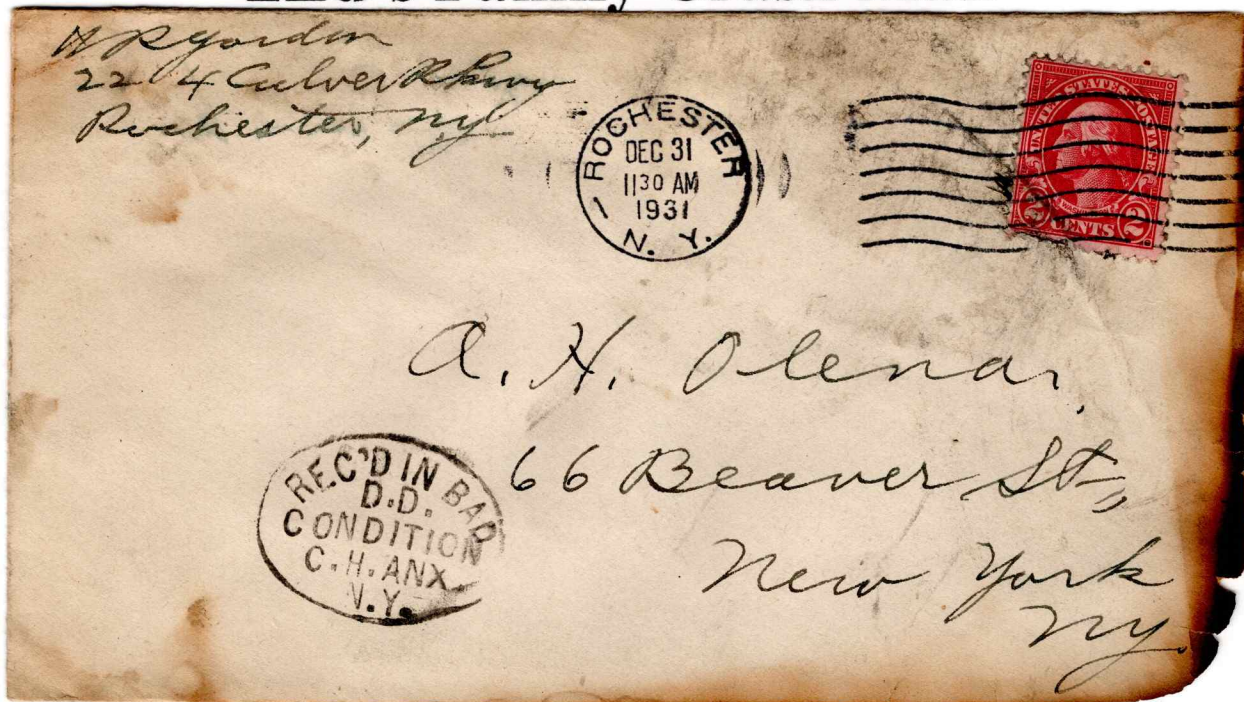 H R Yordon
22 4 Culver Pkwy
Rochester, Ny
ROCHESTER
DEC 31
11 30 AM
1931
1
N. Y.
UNITED STATES POSTAGE
2 CENTS 2
A. H. Olenar,
66 Beaver St.,
New York
Ny.
REC'D IN BAD
D.D.
CONDITION
C.H. ANX.
N.Y.